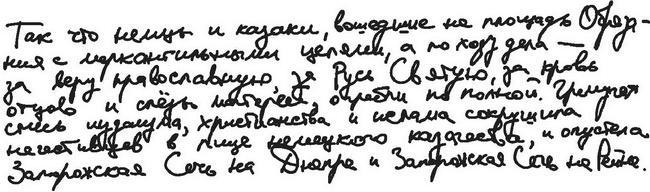 Так что немцы и казаки, вошедшие на площадь Обрез-
ния с меркантильными целями, а по ходу дела —
за веру православную, за Русь Святую, за кровь
отцов и слёзы матерей, огребли по полной. Гремучая
смесь иудаизма, христианства и ислама сокрушила
нечестивцев в лице немецкого казачества, и опустела
Запорожская Сечь на Днепре и Запорожская Сечь на Рейне.